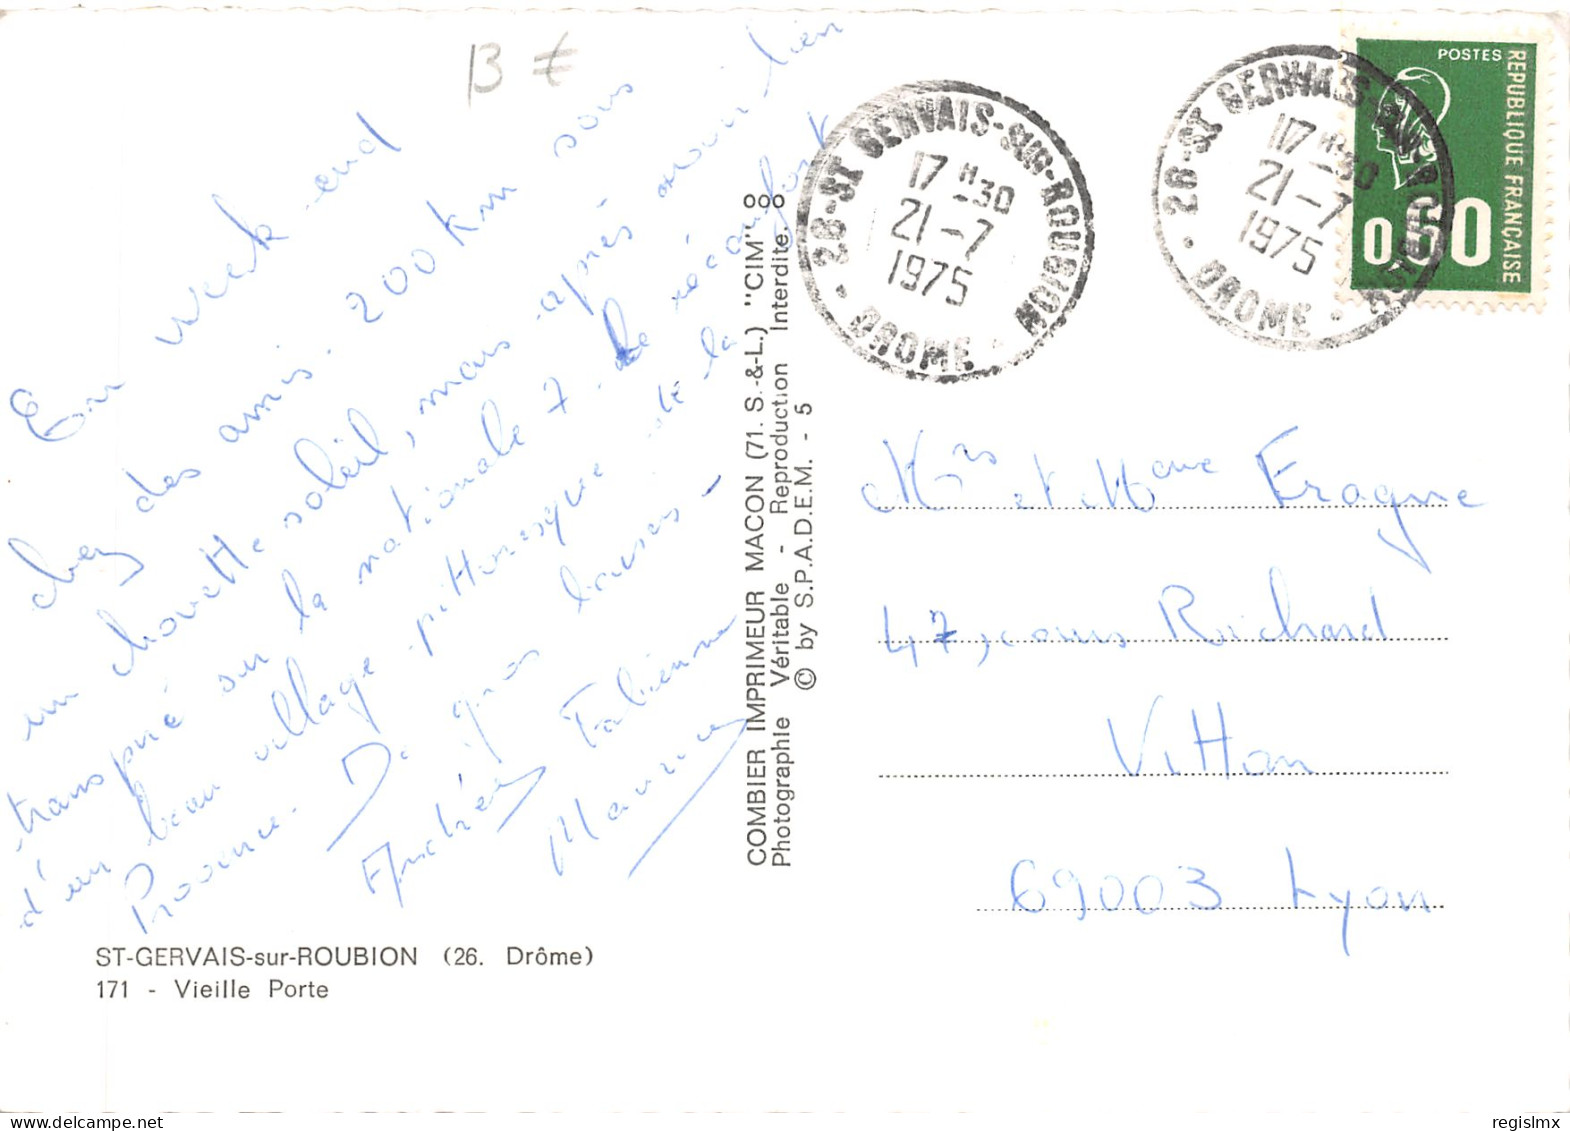 13 €
En week end
chez des amis. 200 km sous
un chouette soleil, mais après avoir bien
transpiré sur la nationale 7. Le réconfort
d'un beau village pittoresque de la
Provence. De gros bises -
Andrée Fabienne
Maurice
ST-GERVAIS-sur-ROUBION (26. Drôme)
171 - Vieille Porte
COMBIER IMPRIMEUR MACON (71. S.-&-L.) "CIM" ooo
Photographie Véritable - Reproduction Interdite
© by S.P.A.D.E.M. - 5
26-ST GERVAIS-SUR-ROUBION
17 H 30
21-7
1975
• DROME •
26-ST GERVAIS-SUR-ROUBION
17 H 30
21-7
1975
• DROME •
POSTES
REPUBLIQUE FRANÇAISE
0,60
Mrs et Mme Eragne
47, cours Richard
Vitton
69003 Lyon
regislmx